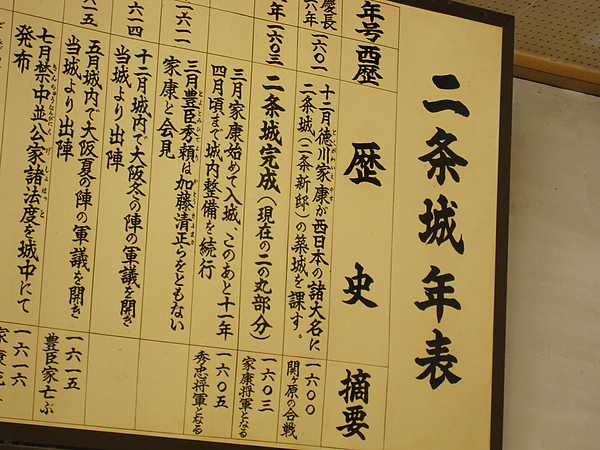 二条城年表
年号
西歴
歴史
摘要
慶長
六年
一六〇一
十二月徳川家康が西日本の諸大名に
二条城(二条新邸)の築城を課す。
一六〇〇
関ヶ原の合戦
年
一六〇三
二条城完成(現在の二の丸部分)
一六〇三
家康将軍となる
三月家康始めて入城、このあと十一年
四月頃まで城内整備を続行
一六〇五
秀忠将軍となる
一六一一
三月豊臣秀頼は加藤清正らをともない
家康と会見
六一四
十二月城内で大阪冬の陣の軍議を開き
当城より出陣
六一五
五月城内で大阪夏の陣の軍議を開き
当城より出陣
一六一五
豊臣家亡ぶ
七月禁中並公家諸法度を城中にて
発布
一六一六